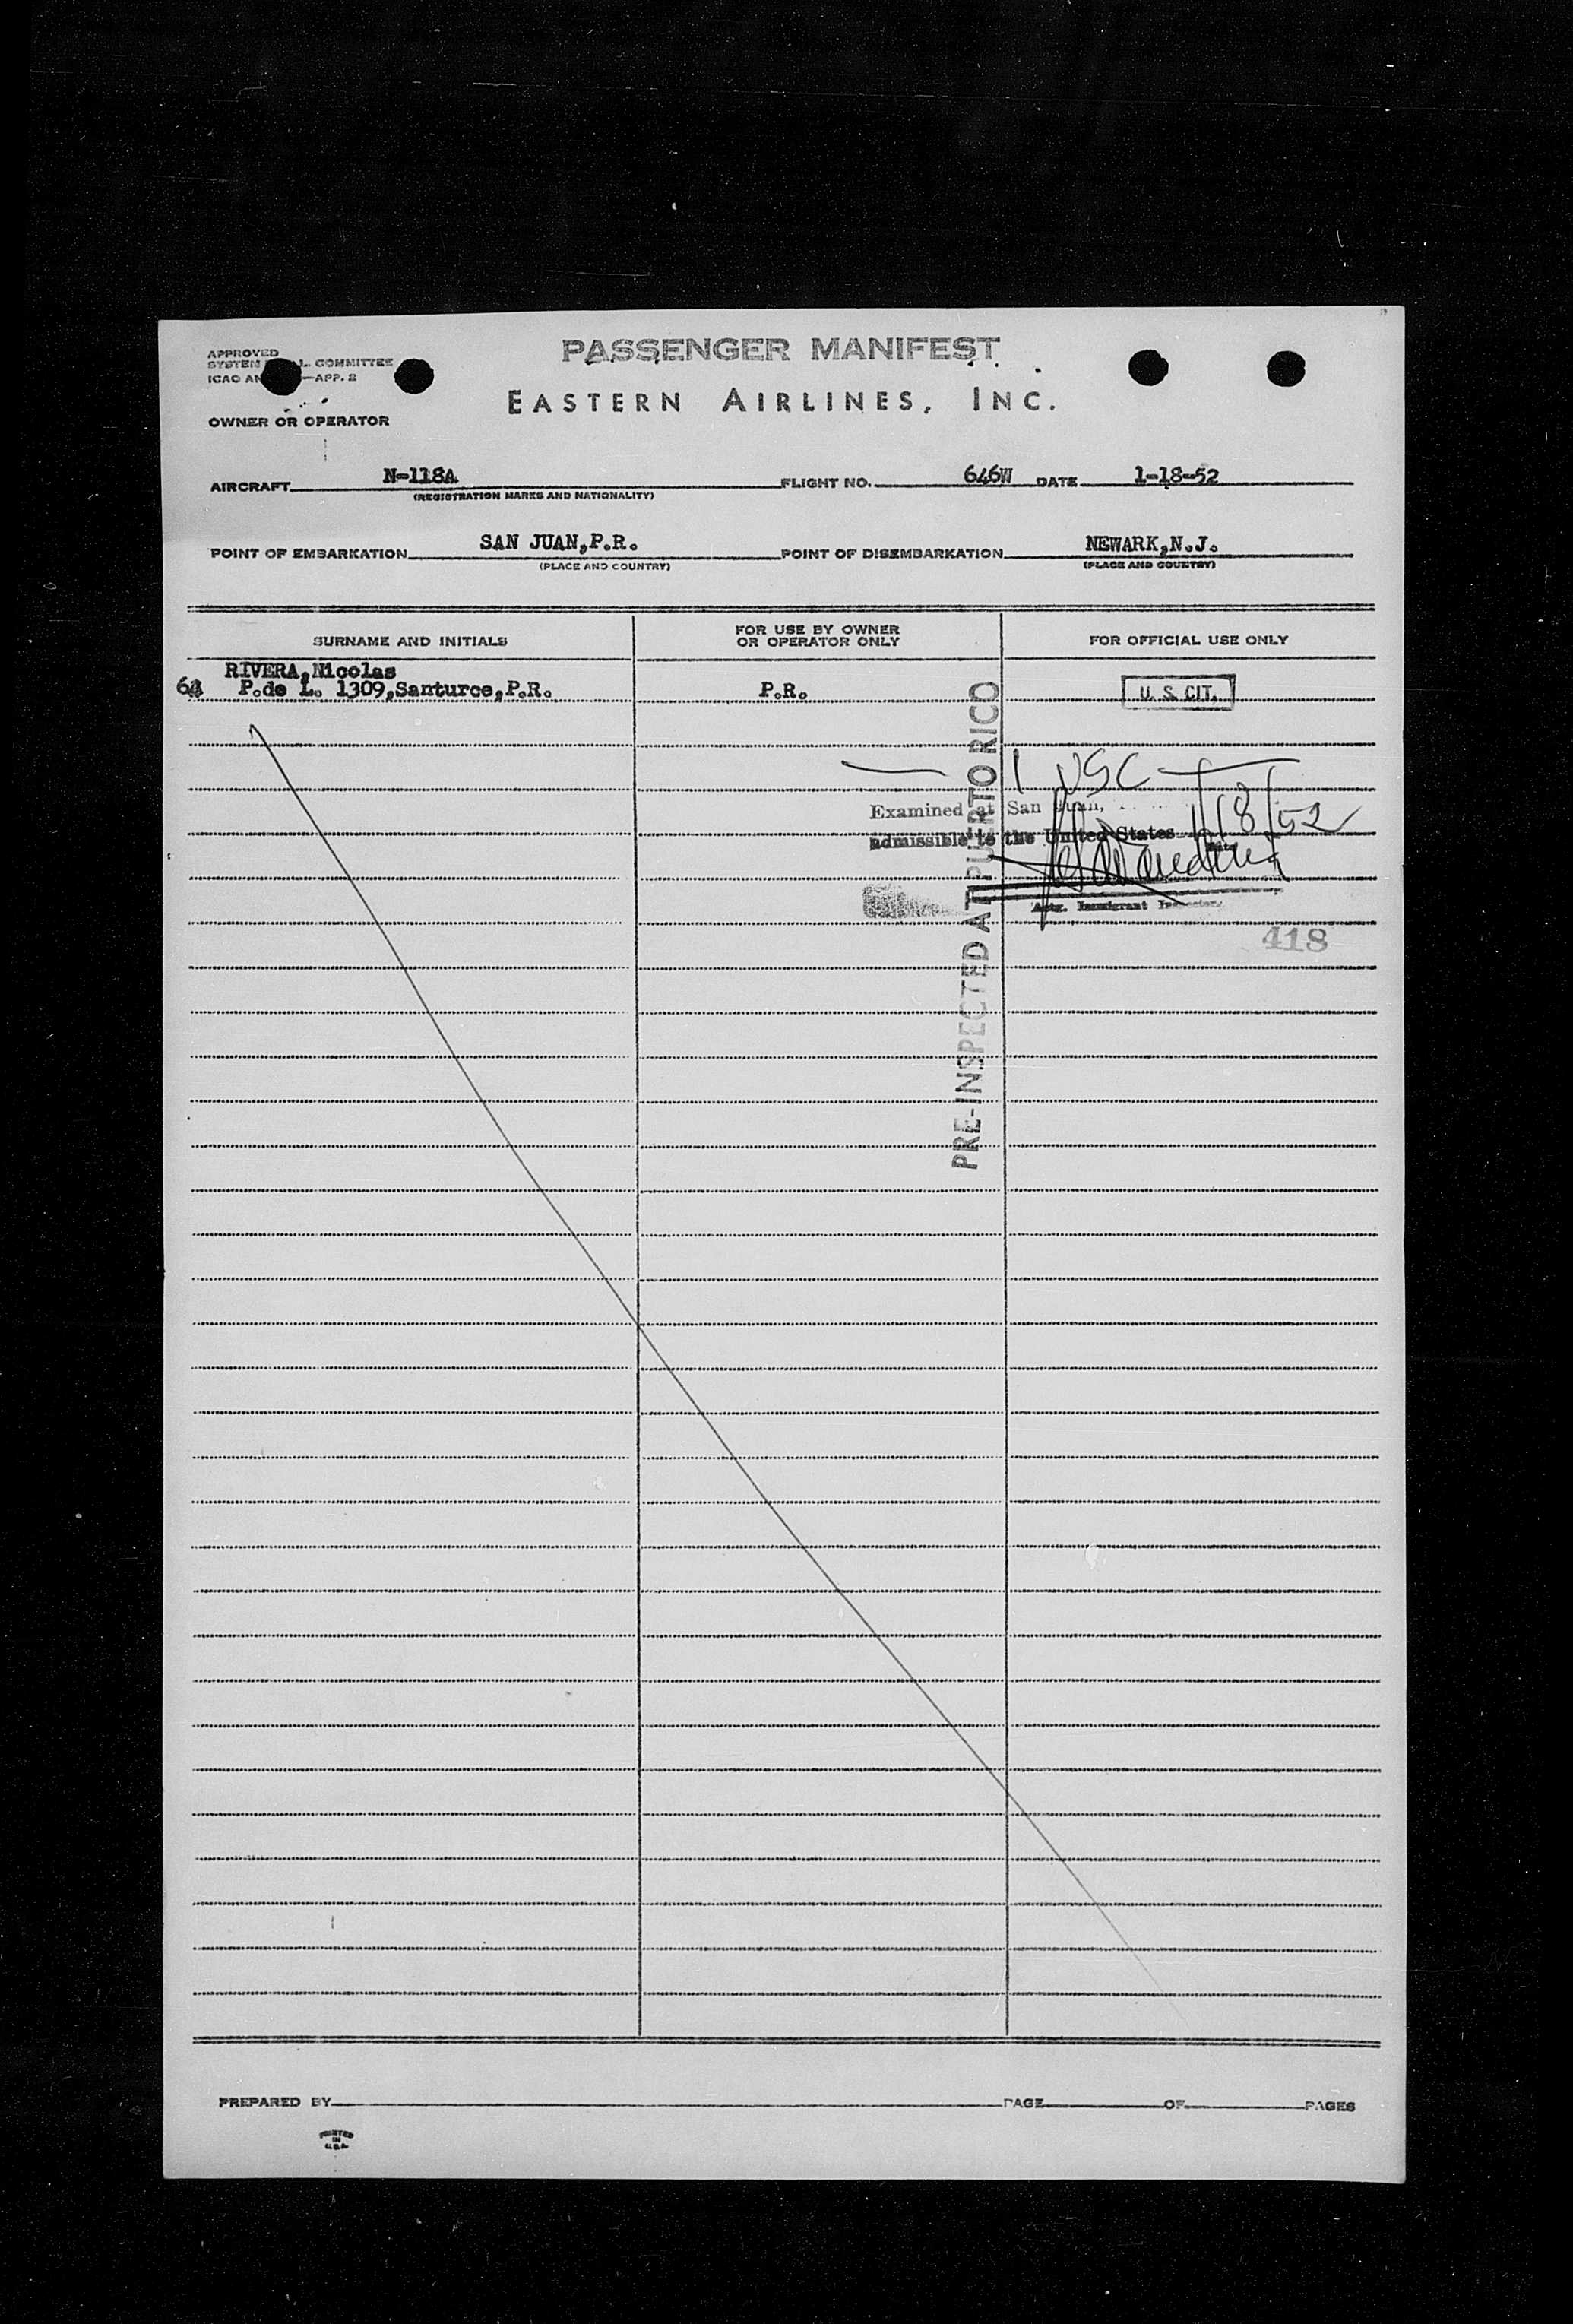 PASSENGER MANIFEST
EASTERN AIRLINES, INC.
APPROVED
SYSTEM COMMITTEE
ICAO AN —APP. 2
OWNER OR OPERATOR
AIRCRAFT N-118A FLIGHT NO. 646W DATE 1-18-52
(REGISTRATION MARKS AND NATIONALITY)
POINT OF EMBARKATION SAN JUAN,P.R. POINT OF DISEMBARKATION NEWARK,N.J.
(PLACE AND COUNTRY) (PLACE AND COUNTRY)
SURNAME AND INITIALS FOR USE BY OWNER OR OPERATOR ONLY FOR OFFICIAL USE ONLY
RIVERA,Nicolas
P.de L. 1309,Santurce,P.R. P.R. U. S. CIT.
1 USC
Examined at San Juan,
admissible to the United States 1/18/52
Date
Immigrant Inspector.
418
PRE-INSPECTED AT PUERTO RICO
PREPARED BY PAGE OF PAGES
PRINTED
IN
U.S.A.